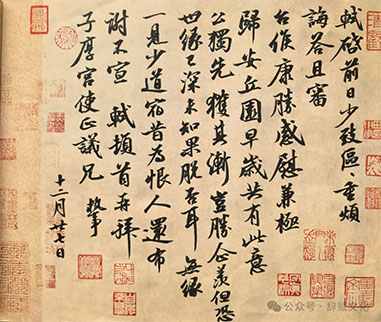 軾啟前日少致區〻重煩
誨答且審
台候康勝感慰兼極
歸安丘園早歲共有此意
公獨先獲其漸豈勝企羨但恐
世緣已深未知果脫否耳無緣
一見少道宿昔為恨人還布
謝不宣 軾頓首再拜
子厚宮使正議兄 執事
十二月廿七日
公众号 · 辞赋文化